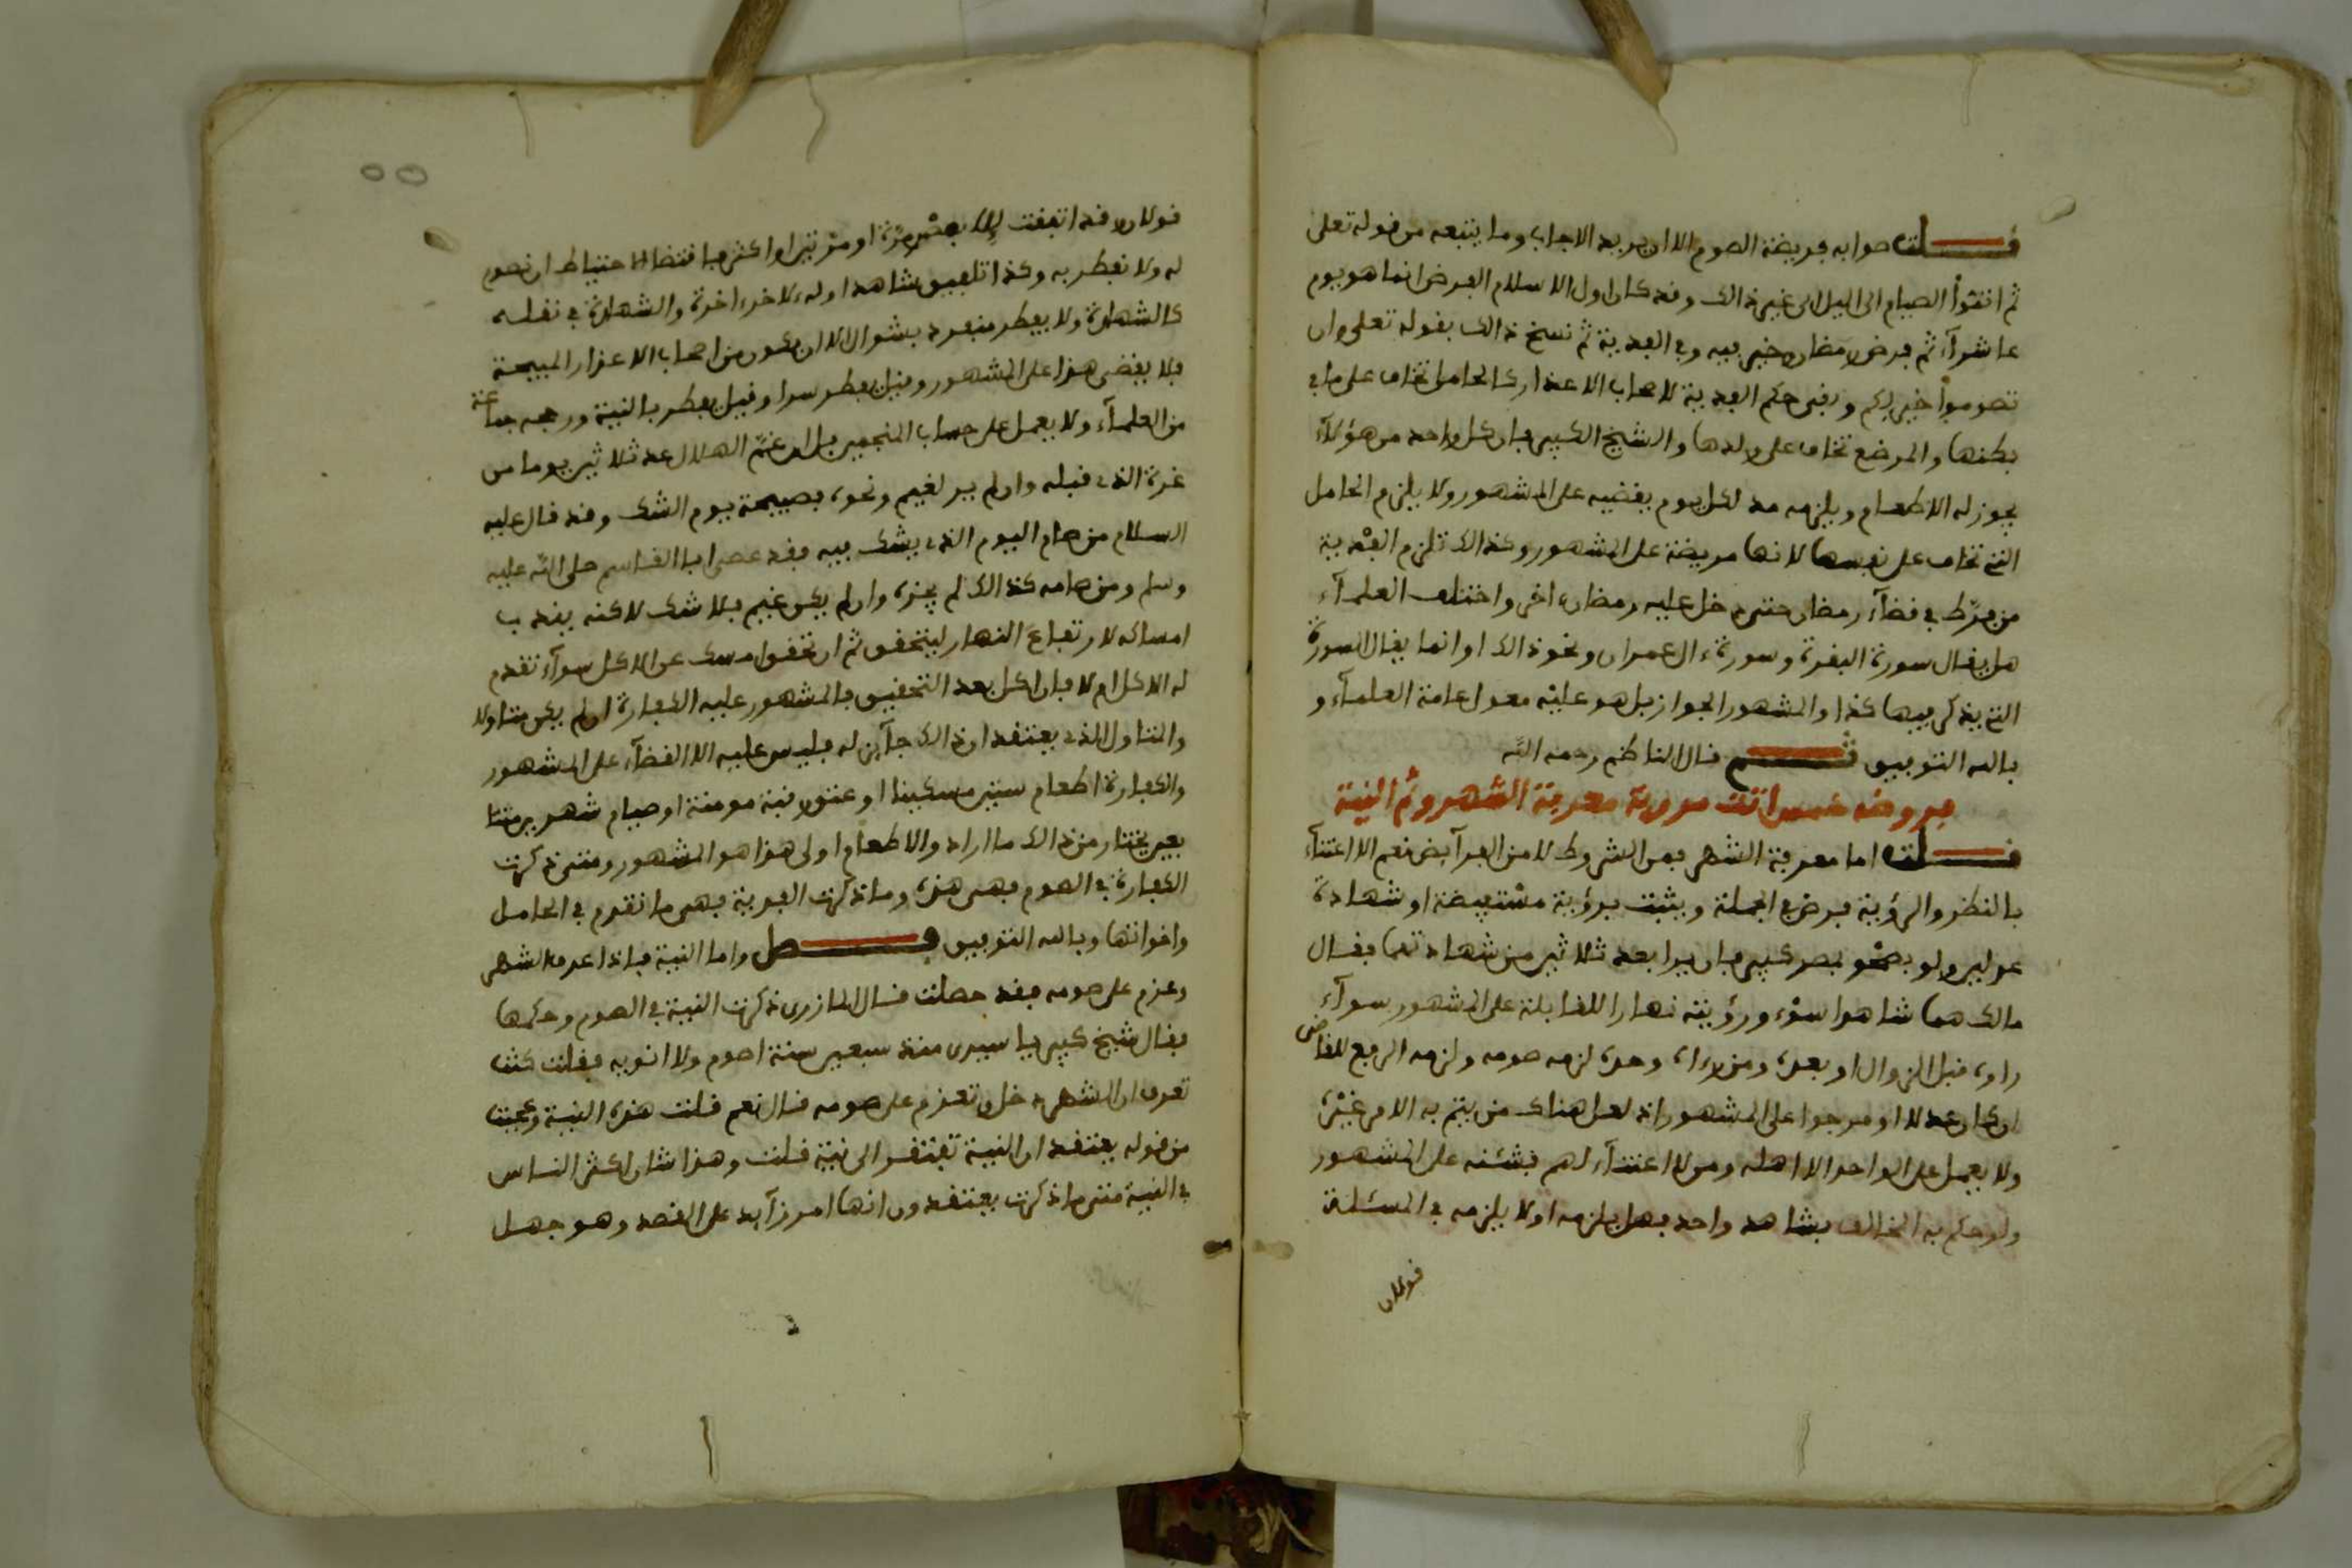 قلت صوابه فريضة الصوم الا ان يريد الايجاب وما يتبعه من قوله تعلى
ثم اتموا الصيام الى اليل الى غير ذالك وقد كان اول الاسلام الفرض انما هو يوم
عاشوراء ثم فرض رمضان وخير فيه وفي الفدية ثم نسخ ذالك بقوله تعلى وان
تصوموا خير لكم وبقي حكم الفدية لاصحاب الاعذار كالحامل تخاف على ما في
بطنها والمرضع تخاف على ولدها والشيخ الكبير فان كل واحد من هؤلاء
يجوز له الاطعام ويلزمه مد لكل يوم يقضيه على المشهور ولا يلزم الحامل
التي تخاف على نفسها لانها مريضة على المشهور وكذالك تلزم الفدية
من فرط في قضاء رمضان حتى دخل عليه رمضان ءاخر واختلف العلماء
هل يقال سورة البقرة وسورة ءال عمران ونحو ذالك او انما يقال السورة
التي يذكر فيها كذا والمشهور الجواز بل هو عليه معول عامة العلماء و
بالله التوفيق ثم قال الناظم رحمه الله
فروضه خمس اتت مروية معرفة الشهر وثم النية
قلت اما معرفة الشهر فمن الشروط لا من الفرايض نعم الاعتناء
بالنظر والرؤية فرض في الجملة ويثبت برؤية مستفيضة او شهادة
عدلين ولو بصحو بمصر كبير فان لم يرا بعد ثلاثين من شهادتهما فقال
مالك هما شاهدا سوء ورؤيته نهارا للقابلة على المشهور سواء
راوه قبل الزوال او بعده ومن رءاه وحده لزمه صومه ولزمه الرفع للقاضي
ان كان عدلا او مرجوا على المشهور اذ لعل هناك من يتم به الامر غيره
ولا يعمل على الواحد الا اهله ومن لا اعتناء لهم بشانه على المشهور
ولو حكم به المخالف بشاهد واحد فهل يلزمه او لا يلزمه في المسئلة
قولان
قولان وقد اتفقت مرة او مرتين او اكثر فاقتضا الاحتياط ان نصوم
له ولا نفطر به وكذا تلفيق شاهد اوله لاخر ءاخره والشهادة في نقله
كالشهادة ولا يفطر منفرد بشوال الا ان يكون من اصحاب الاعذار المبيحة
فلا يقضى هذا على المشهور وقيل يفطر سرا وقيل يفطر بالنية ورجحه جماعة
من العلماء ولا يعمل على حساب المنجمين بل ان غم الهلال عد ثلاثين يوما من
غرة الذي قبله وان لم ير لغيم ونحوه فصبيحة يوم الشك وقد قال عليه
السلام من صام اليوم الذي يشك فيه فقد عصى ابا القاسم صلى الله عليه
وسلم ومن صامه كذالك لم يجزه وان لم يكن غيم فلا شك لاكنه يندب
امساكه لارتفاع النهار ليتحقق ثم ان تحقق امسك عن الاكل سواء تقدم
له الاكل ام لا فان اكل بعد التحقيق فالمشهور عليه الكفارة ان لم يكن متاولا
والمتاول الذي يعتقد ان ذالك جائز له فليس عليه الا القضاء على المشهور
والكفارة اطعام ستين مسكينا او عتق رقبة مومنة او صيام شهرين متتا
بعين يختار من ذالك ما اراد والاطعام اولى هذا هو المشهور ومتى ذكرت
الكفارة في الصوم فهي هذه وما ذكرت الفدية فهي ما تقدم في الحامل
واخواتها وبالله التوفيق فصل واما النية فاذا عرف الشهر
وعزم على صومه فقد حصلت قال المازري ذكرت النية في الصوم وحكمها
فقال شيخ كبير يا سيدي منذ سبعين سنة اصوم ولا انويه فقلت كنت
تعرف ان الشهر دخل وتعزم على صومه قال نعم قلت هذه النية وعجبت
من قوله يعتقد ان النية تفتقر الى نية قلت وهذا شان اكثر الناس
في النية متى ما ذكرت يعتقدون انها امر زايد على القصد وهو جهل